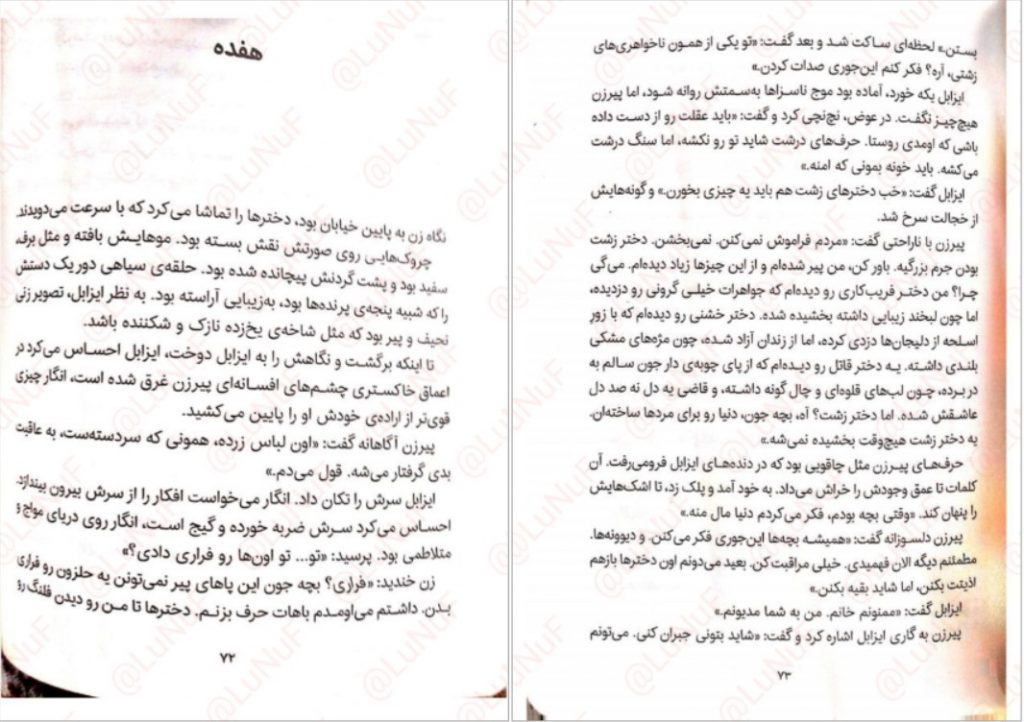 هفده
نگاه زن به پایین خیابان بود، دخترها را تماشا می‌کرد که با سرعت می‌دویدند.
چروک‌هایی روی صورتش نقش بسته بود. موهایش بافته و مثل برف،
سفید بود و پشت گردنش پیچانده شده بود. حلقه‌ی سیاهی دور یک دستش
را که شبیه پنجه‌ی پرنده‌ها بود، به‌زیبایی آراسته بود. به نظر ایزابل، تصویر زنی
نحیف و پیر بود که مثل شاخه‌ی یخ‌زده نازک و شکننده باشد.
تا اینکه برگشت و نگاهش را به ایزابل دوخت، ایزابل احساس می‌کرد در
اعماق خاکستری چشم‌های افسانه‌ای پیرزن غرق شده است، انگار چیزی
قوی‌تر از اراده‌ی خودش او را پایین می‌کشید.
پیرزن آگاهانه گفت: «اون لباس زرده، همونی که سردسته‌ست، به عاقبت
بدی گرفتار می‌شه. قول می‌دم.»
ایزابل سرش را تکان داد. انگار می‌خواست افکار را از سرش بیرون بیندازد.
احساس می‌کرد سرش ضربه خورده و گیج است، انگار روی دریای مواج و
متلاطمی بود. پرسید: «تو... تو اون‌ها رو فراری دادی؟»
زن خندید: «فراری؟ بچه جون این پاهای پیر نمی‌تونن یه حلزون رو فراری
بدن. داشتم می‌اومدم باهات حرف بزنم. دخترها تا من رو دیدن فلنگ رو
۷۲
بستن.» لحظه‌ای ساکت شد و بعد گفت: «تو یکی از همون ناخواهری‌های
زشتی، آره؟ فکر کنم این‌جوری صدات کردن.»
ایزابل یکه خورد، آماده بود موج ناسزاها به‌سمتش روانه شود، اما پیرزن
هیچ‌چیز نگفت. در عوض، نچ‌نچی کرد و گفت: «باید عقلت رو از دست داده
باشی که اومدی روستا. حرف‌های درشت شاید تو رو نکشه، اما سنگ درشت
می‌کشه. باید خونه بمونی که امنه.»
ایزابل گفت: «خب دخترهای زشت هم باید یه چیزی بخورن.» و گونه‌هایش
از خجالت سرخ شد.
پیرزن با ناراحتی گفت: «مردم فراموش نمی‌کنن. نمی‌بخشن. دختر زشت
بودن جرم بزرگیه. باور کن، من پیر شده‌ام و از این چیزها زیاد دیده‌ام. می‌گی
چرا؟ من دختر فریب‌کاری رو دیده‌ام که جواهرات خیلی گرونی رو دزدیده،
اما چون لبخند زیبایی داشته بخشیده شده. دختر خشنی رو دیده‌ام که با زور
اسلحه از دلیجان‌ها دزدی کرده، اما از زندان آزاد شده، چون مژه‌های مشکی
بلندی داشته. یه دختر قاتل رو دیده‌ام که از پای چوبه‌ی دار جون سالم به
در برده، چون لب‌های قلوه‌ای و چال گونه داشته، و قاضی یه دل نه صد دل
عاشقش شده. اما دختر زشت؟ آه، بچه جون، دنیا رو برای مردها ساخته‌ان.
یه دختر زشت هیچ‌وقت بخشیده نمی‌شه.»
حرف‌های پیرزن مثل چاقویی بود که در دنده‌های ایزابل فرومی‌رفت. آن
کلمات تا عمق وجودش را خراش می‌داد. به خود آمد و پلک زد، تا اشک‌هایش
را پنهان کند. «وقتی بچه بودم، فکر می‌کردم دنیا مال منه.»
پیرزن دلسوزانه گفت: «همیشه بچه‌ها این‌جوری فکر می‌کنن. و دیوونه‌ها.
مطمئنم دیگه الان فهمیدی. خیلی مراقبت کن. بعید می‌دونم اون دخترها بازهم
اذیتت بکنن، اما شاید بقیه بکنن.»
ایزابل گفت: «ممنونم خانم. من به شما مدیونم.»
پیرزن به گاری ایزابل اشاره کرد و گفت: «شاید بتونی جبران کنی. می‌تونم
۷۳
@LuNuF